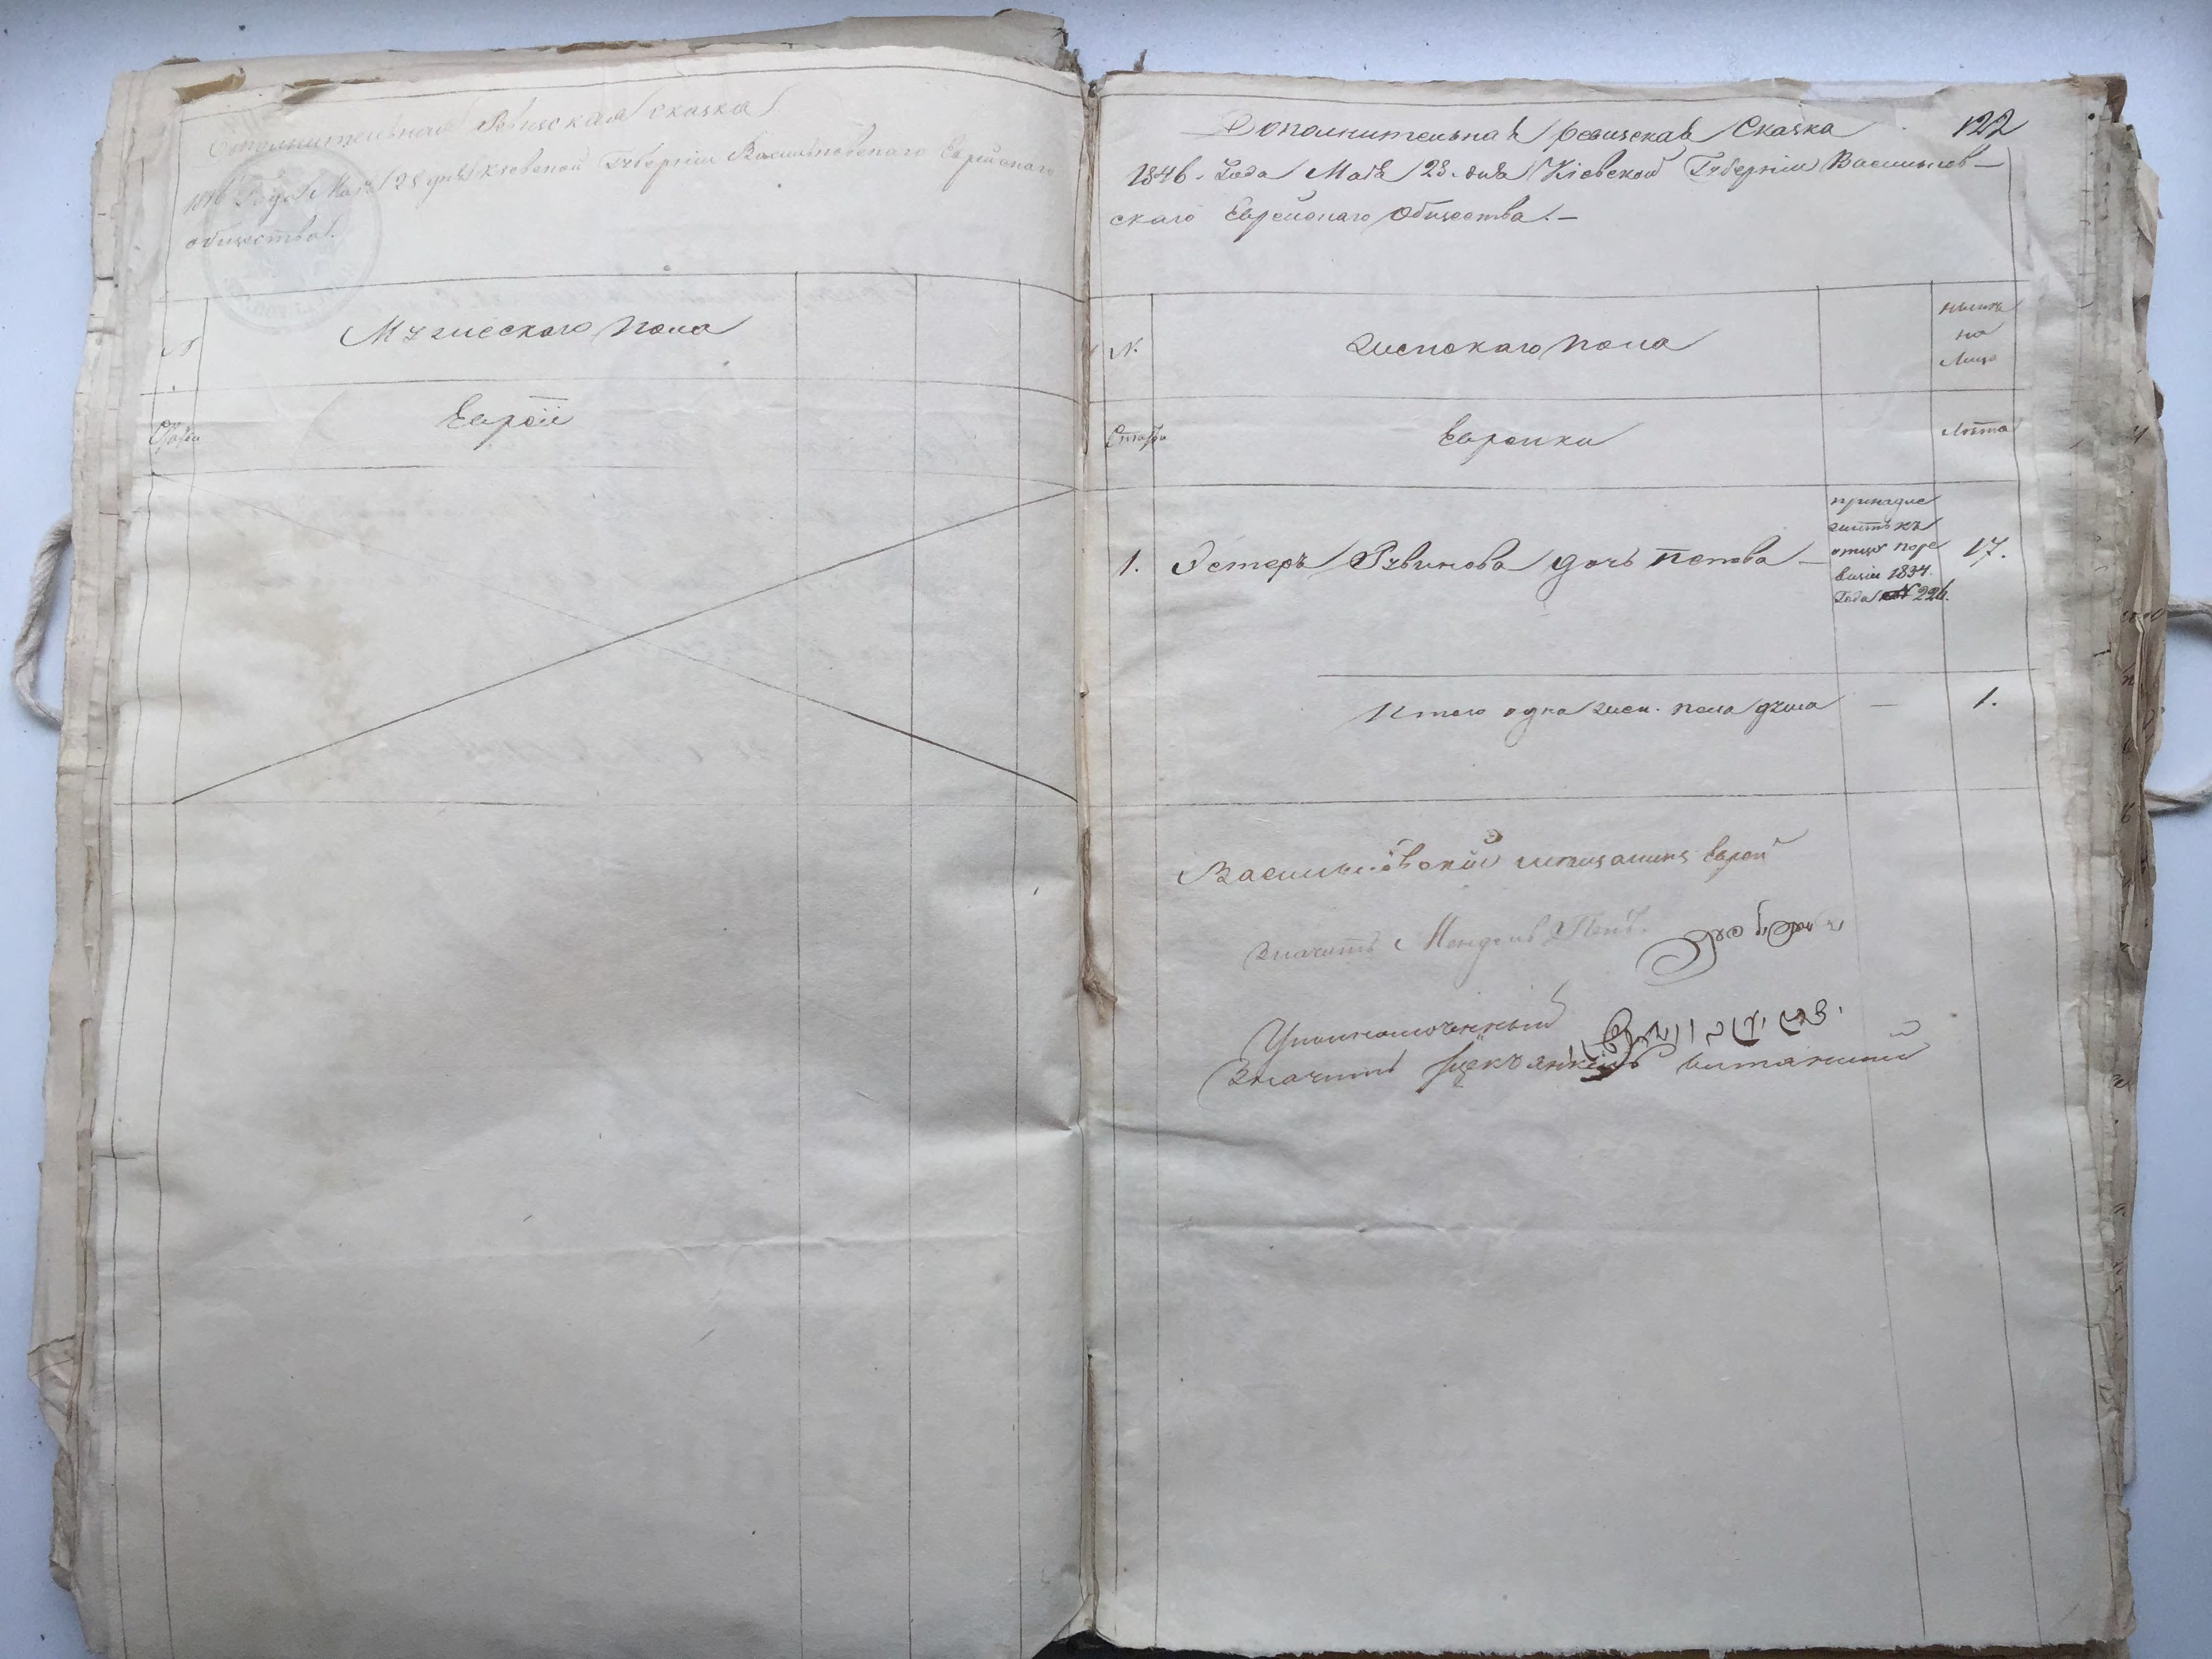 Дополнительная Ревизская сказка
1846 Года Маія 28 дня Кіевской Губерніи Васильковскаго Еврейскаго
общества.
№
Мужескаго пола
Евреи
122
Дополнительная ревизская Сказка
1846. Года Маія 28. дня Кіевской Губерніи Васильков-
скаго Еврейскаго Общества. —
N.
женскаго пола
ныне
на
лицо
Еврейки
Лѣта
1. Эстеръ Рувинова дочь — 17.
принадле
житъ къ
отцу по ре
визіи 1834.
Года № 226.
Итого одна жен. пола душа — 1.
Васильковскій мещанинъ еврей
Значитъ Мендель
Уполномоченный
Значитъ